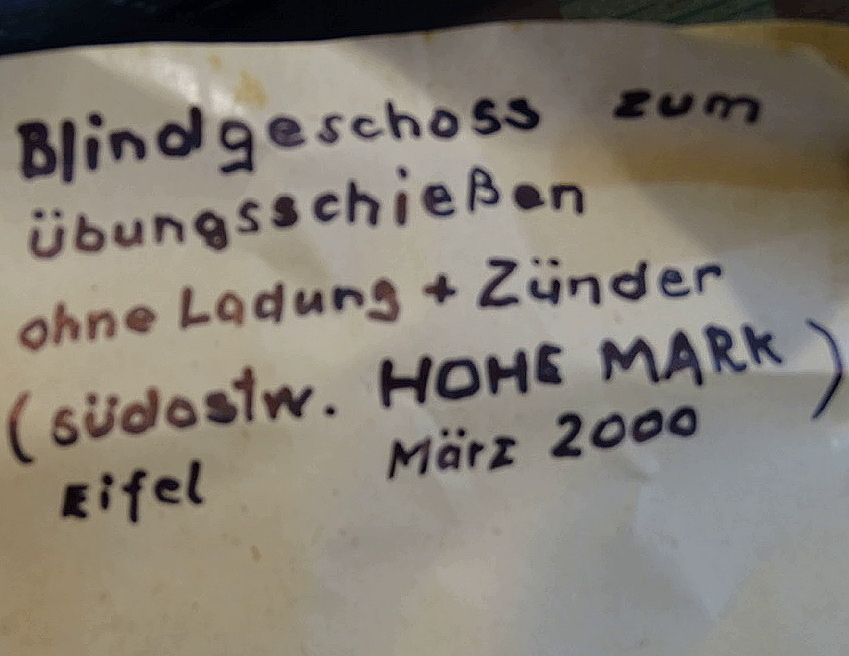 Blindgeschoss zum
übungsschießen
ohne Ladung + Zünder
(südostw. HOHE MARK)
Eifel März 2000